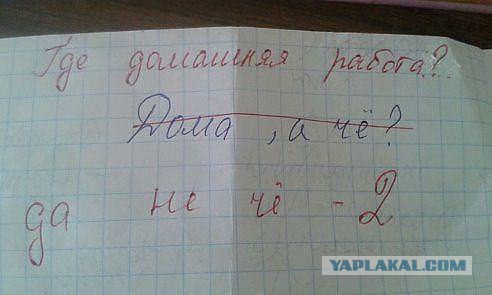 Где домашняя работа?
Дома, а чё?
да не чё - 2
YAPLAKAL.COM